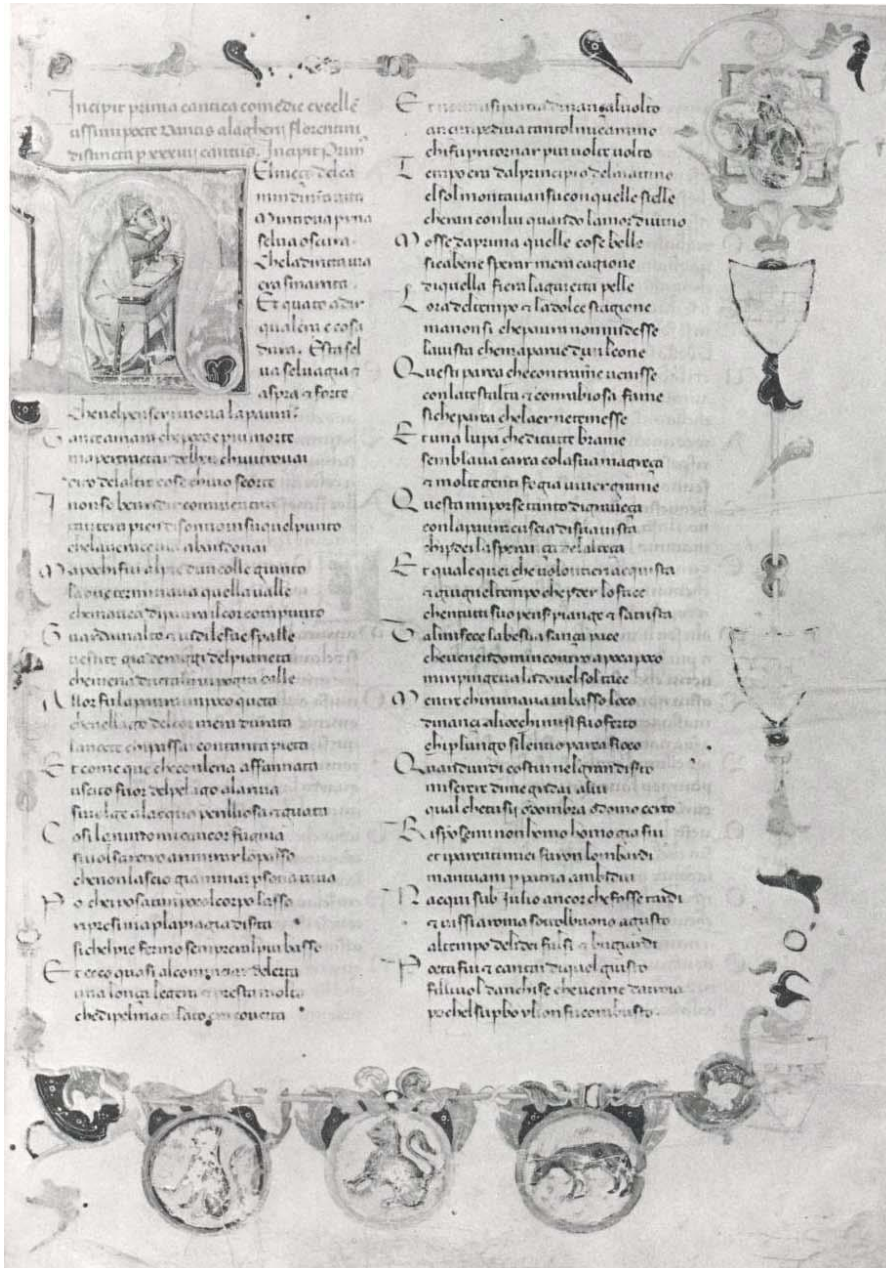 Incipit prima cantica comedie excellẽ
tissimi poete Dantis alagherij florentini
distincta p xxxiiij cantus. Incipit Prim̃
El meço del ca
min di nr̃a uita
Mi ritrouai p una
selua oscura.
Che la diritta uia
era smarita
Et quãto a dir
qual era e cosa
dura. Esta sel
ua seluagia ⁊
aspra ⁊ forte
Che nel penser rinoua la paura.
Tant e amara che poco e piu morte
ma per tractar del ben
diro de l altre cose
I non so ben ridir com
tant era pien di sonno in su quel punto
che la uerace uia abandonai
Ma po chi fui al pie d un colle giunto
la oue terminaua quella ualle
che m auea di paura il cor compunto
Guardai in alto ⁊ uidi le sue spalle
uestite gia de raggi del pianeta
che mena
Allor fu la paura un poco queta
che nel lago del cor m era durata
la nocte ch i passai con tanta pieta
Et come que che con lena affannata
uscito fuor del pelago a la riua
si uolge a l acqua perigliosa ⁊ guata
Cosi l animo mio ancor fugiua
si uolse retro a rimirar lo passo
che non lascio gia mai psona uiua
Po ch ei posato un poco l corpo lasso
ripresi uia p la piagia diserta
si che l pie fermo sempre era l piu basso
Et ecco quasi al cominciar de l erta
una lonça legera ⁊ presta molto
che di pel maculato era couerta
Et non mi si partia dinançi al uolto
anci impediua tanto l mi camino
ch i fu p ritornar piu uolte uolto
Tempo era dal principio del mattino
e l sol montaua in su con quelle stelle
ch eran con lui quando l amor diuino
Mosse da prima quelle cose belle
si c a bene sperar m era cagione
di quella fiera la gaietta pelle
L ora del tempo ⁊ la dolce stagione
ma non si che paura non mi desse
la uista che m aparue d un leone
Questi parea che contra me uenisse
con la test alta ⁊ con rabiosa fame
si che parea che l aer ne temesse
Et una lupa che di tutte brame
semblaua carca co la sua magreça
⁊ molte genti fe gia uiuer grame
Questa mi porse tanto di graueça
con la paura c uscia di sua uista
ch i pdei la sperança de l alteça
Et quale quei che uolontieri acquista
⁊ giugne l tempo che pder lo face
che n tutti suo pensier piange ⁊ s atrista
Tal mi fece la bestia sança pace
che uenendomi incontro a poco a poco
mi ripingeua la doue l sol tace
Mentre ch i ruinaua in basso loco
dinançi a li occhi mi si fu oferto
chi p lungo silentio parea fioco
Quando uidi costui nel gran diserto
miserere di me gridai a lui
qual che tu sij od ombra od omo certo
Risposemi non homo homo gia fui
et i parenti miei furon lombardi
mantuani p patria ambidui
Nacqui sub Julio ancor che fosse tardi
⁊ uissi a roma sotto l buono agusto
al tempo de li dei falsi ⁊ bugiardi
Poeta fui ⁊ cantai di quel giusto
filliuol d anchise che uenne da troia
po che l supbo ylion fu combusto.